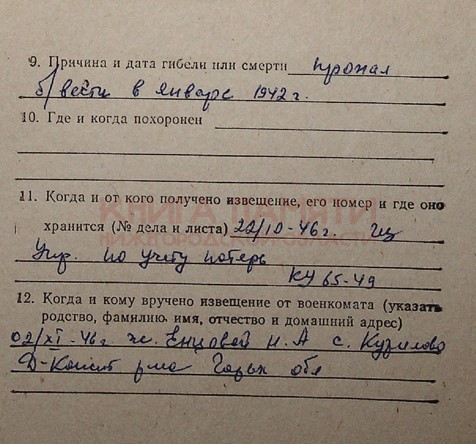 9. Причина и дата гибели или смерти пропал
б/вести в январе 1942 г.
10. Где и когда похоронен
11. Когда и от кого получено извещение, его номер и где оно
хранится (№ дела и листа) 22/10-46 г. из
Упр. по учету потерь
КУ 65-49
12. Когда и кому вручено извещение от военкомата (указать
родство, фамилию, имя, отчество и домашний адрес)
02/XI-46 г. ж. Енцовой Н. А с. Курилово
Д-Конст р-на Горьк обл
КНИГА ПАМЯТИ
НИЖЕГОРОДСКОЙ ОБЛАСТИ